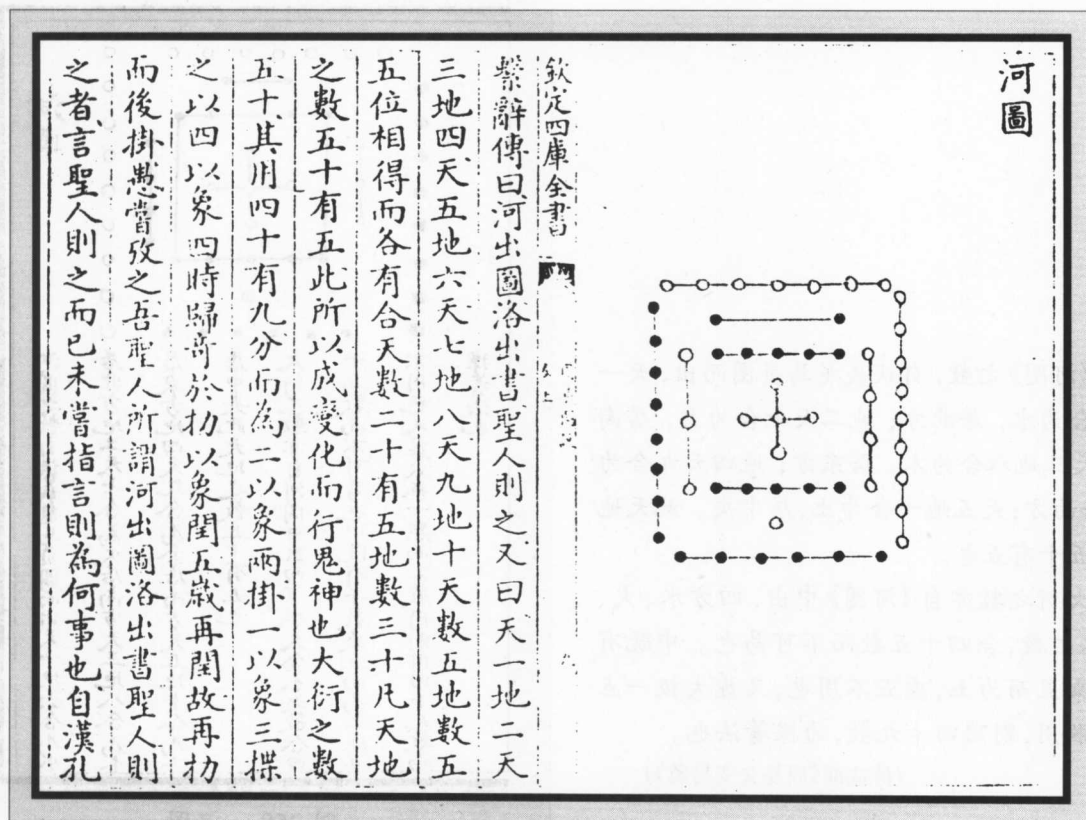 河圖
欽定四庫全書
繫辭傳曰河出圖洛出書聖人則之又曰天一地二天
三地四天五地六天七地八天九地十天數五地數五
五位相得而各有合天數二十有五地數三十凡天地
之數五十有五此所以成變化而行鬼神也大衍之數
五十其用四十有九分而為二以象兩掛一以象三揲
之以四以象四時歸奇於扐以象閏五歲再閏故再扐
而後掛愚嘗攷之吾聖人所謂河出圖洛出書聖人則
之者言聖人則之而已未嘗指言則為何事也自漢孔